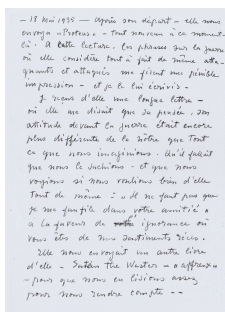 - 13 Mai 1935 - Après son départ - elle nous
envoya «Proteus» - tout nouveau à ce moment-
là. A cette lecture, les phrases sur la guerre
où elle considère tout à fait de même atta-
quants et attaqués me firent une pénible
impression - et je le lui écrivis -
Je reçus d'elle une longue lettre -
où elle me disait que sa pensée, son
attitude devant la guerre était encore
plus différente de la nôtre que tout
ce que nous imaginions. Qu'il fallait
que nous le sachions - et que nous
voyions si nous voulions bien d'elle
tout de même - «Il ne faut pas que
je me faufile dans votre amitié»
à la faveur de votre ignorance où
vous êtes de mes sentiments réels.
Elle nous envoyait un autre livre
d'elle - Satan the Waster - «affreux»
- pour que nous en lisions assez
pour nous rendre compte --